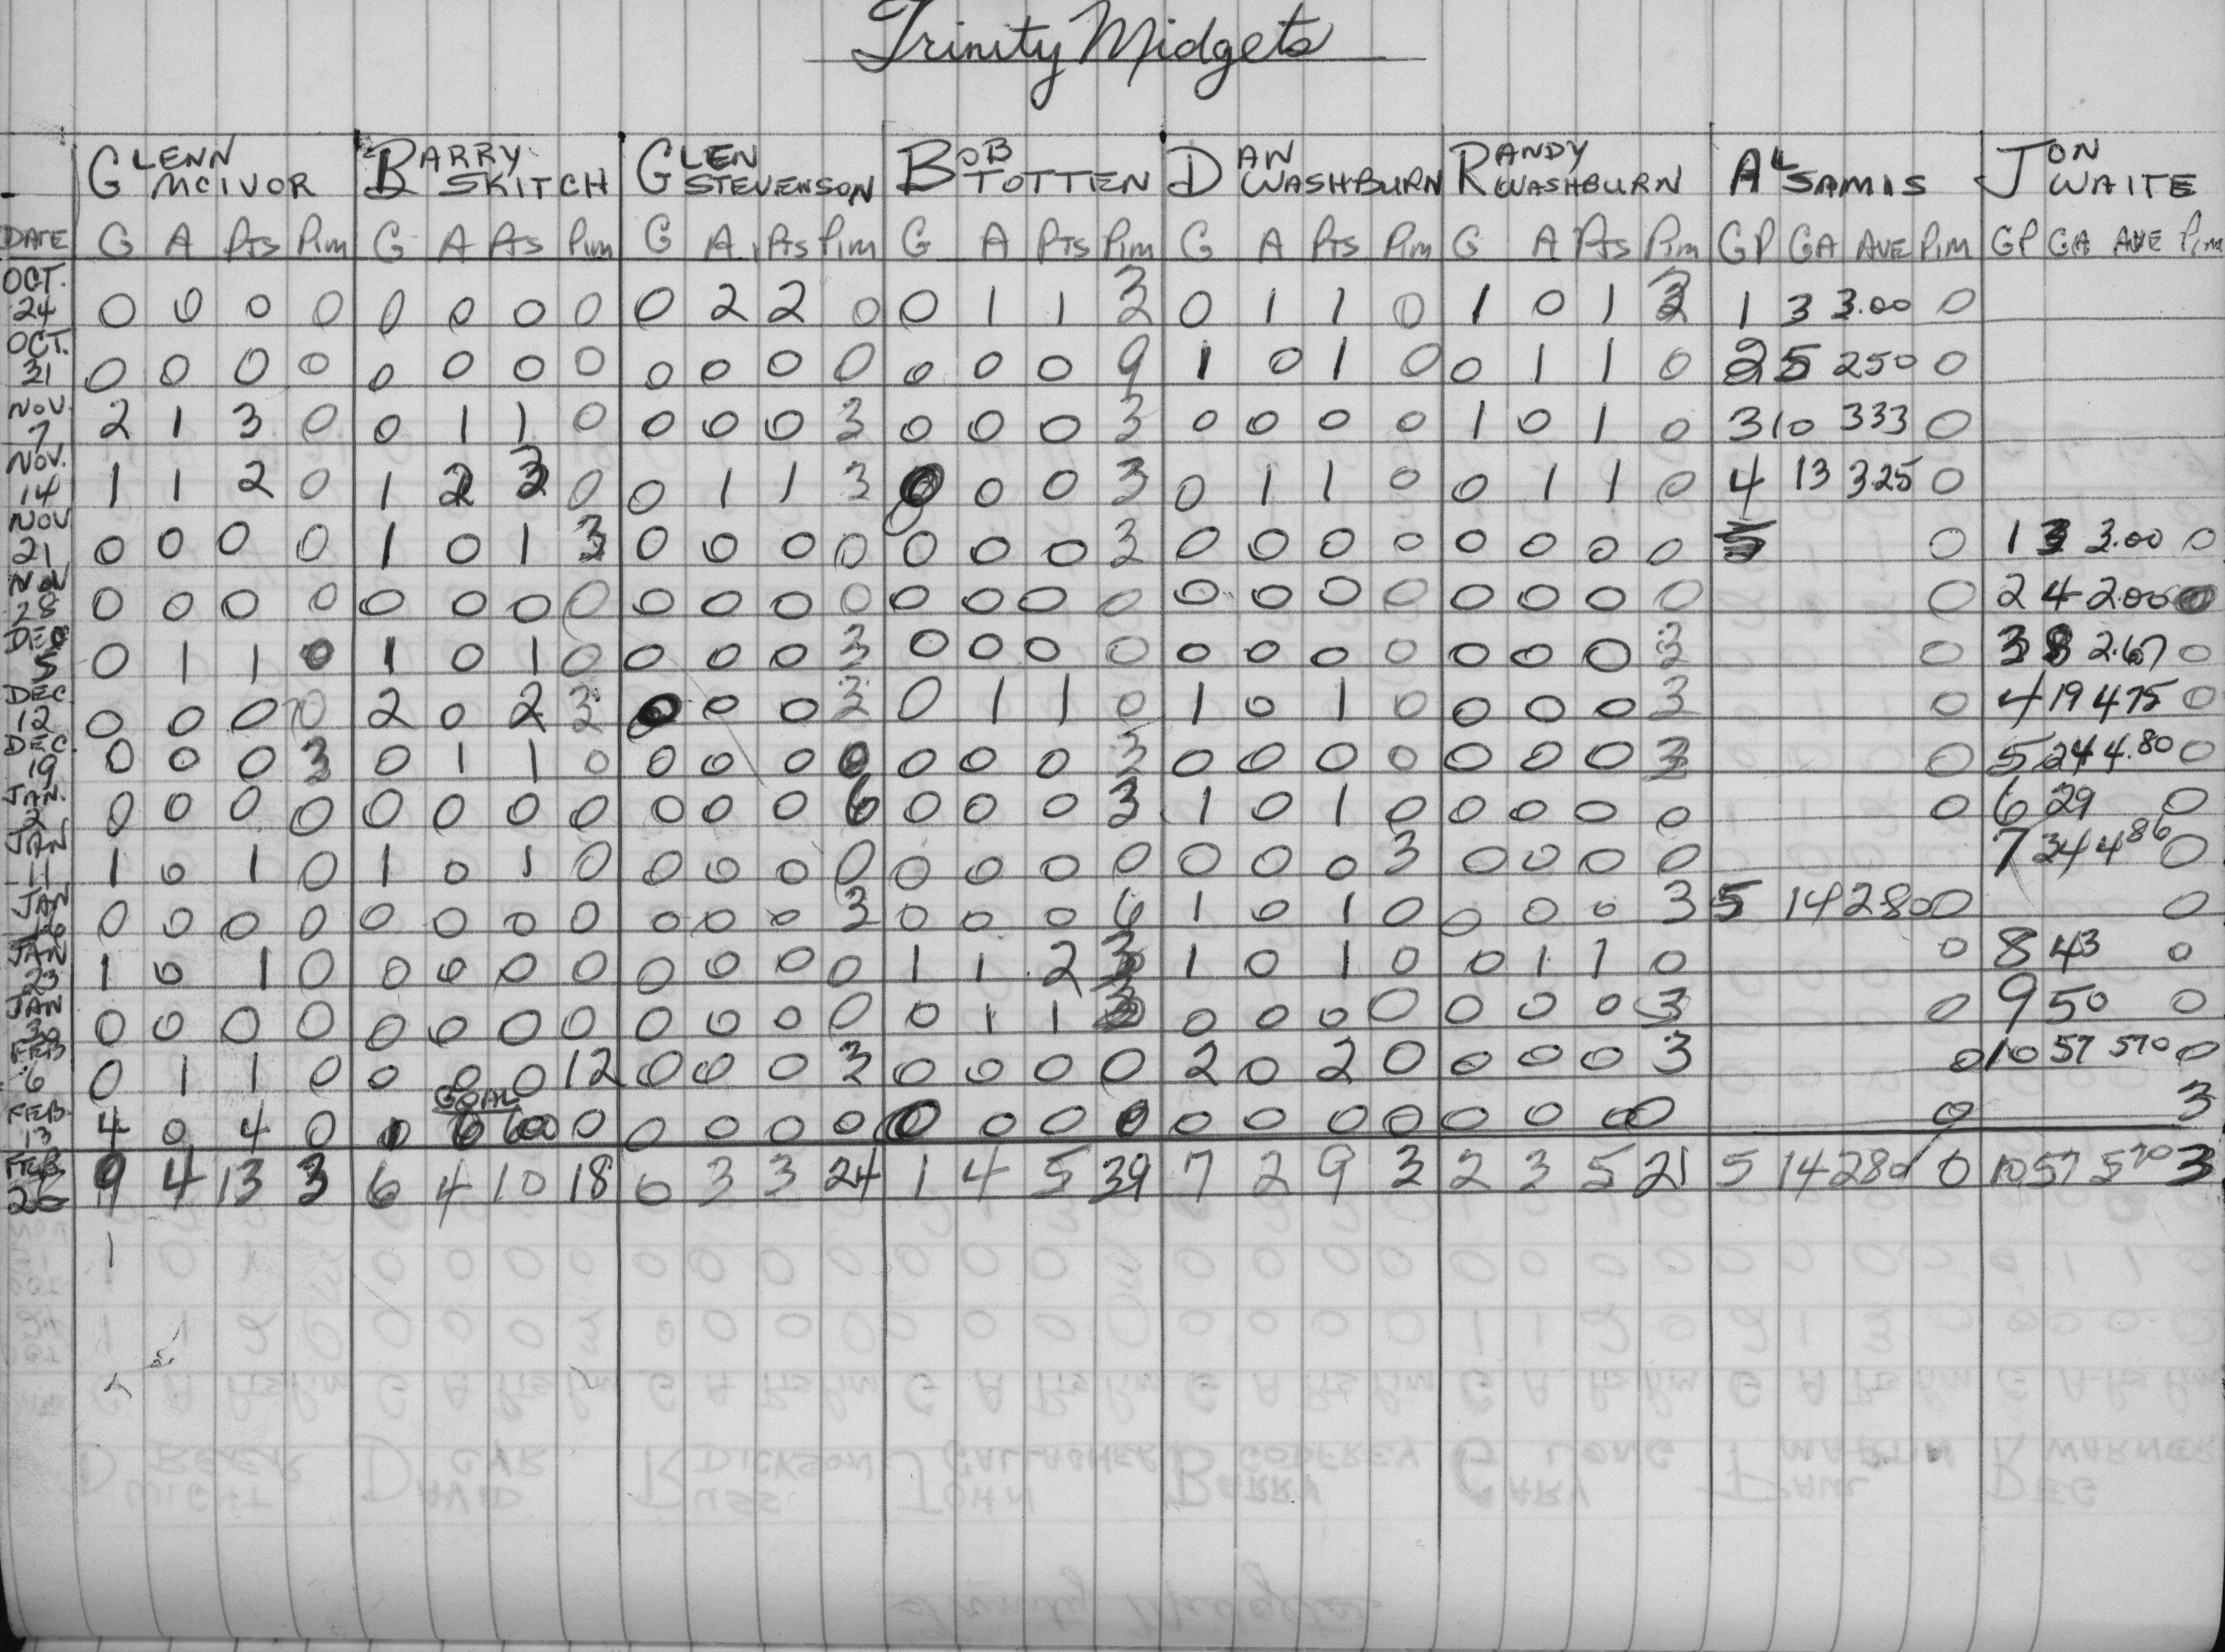 Trinity Midgets
GLENN MCIVOR BARRY SKITCH GLEN STEVENSON BOB TOTTEN DAN WASHBURN RANDY WASHBURN AL SAMIS JON WAITE
DATE G A Pts Pim G A Pts Pim G A Pts Pim G A Pts Pim G A Pts Pim G A Pts Pim GP GA AVE Pim GP GA AVE Pim
OCT. 24 0 0 0 0 0 0 0 0 0 2 2 0 0 1 1 3 0 1 1 0 1 0 1 3 1 3 3.00 0
OCT. 31 0 0 0 0 0 0 0 0 0 0 0 0 0 0 0 9 1 0 1 0 0 1 1 0 2 5 250 0
NOV. 7 2 1 3 0 0 1 1 0 0 0 0 3 0 0 0 3 0 0 0 0 1 0 1 0 3 10 333 0
NOV. 14 1 1 2 0 1 2 3 0 0 1 1 3 0 0 0 3 0 1 1 0 0 1 1 0 4 13 325 0
NOV 21 0 0 0 0 1 0 1 3 0 0 0 0 0 0 0 3 0 0 0 0 0 0 0 0 0 1 3 3.00 0
NOV 28 0 0 0 0 0 0 0 0 0 0 0 0 0 0 0 0 0 0 0 0 0 0 0 0 0 2 4 2.00 0
DEC 5 0 1 1 0 1 0 1 0 0 0 0 3 0 0 0 0 0 0 0 0 0 0 0 3 0 3 8 2.67 0
DEC 12 0 0 0 0 2 0 2 3 0 0 0 3 0 1 1 0 1 0 1 0 0 0 0 3 0 4 19 475 0
DEC. 19 0 0 0 3 0 1 1 0 0 0 0 0 0 0 0 3 0 0 0 0 0 0 0 3 0 5 24 4.80 0
JAN. 2 0 0 0 0 0 0 0 0 0 0 0 6 0 0 0 3 1 0 1 0 0 0 0 0 0 6 29 0
JAN 11 1 0 1 0 1 0 1 0 0 0 0 0 0 0 0 0 0 0 0 3 0 0 0 0 7 34 4 86 0
JAN 16 0 0 0 0 0 0 0 0 0 0 0 3 0 0 0 6 1 0 1 0 0 0 0 3 5 14 280 0 0
JAN 23 1 0 1 0 0 0 0 0 0 0 0 0 1 1 2 3 1 0 1 0 0 1 1 0 0 8 43 0
JAN 30 0 0 0 0 0 0 0 0 0 0 0 0 0 1 1 3 0 0 0 0 0 0 0 3 0 9 50 0
FEB 6 0 1 1 0 0 0 0 12 0 0 0 3 0 0 0 0 2 0 2 0 0 0 0 3 0 10 57 570 0
GOAL
FEB. 13 4 0 4 0 0 0 0 0 0 0 0 0 0 0 0 0 0 0 0 0 0 0 3
FEB. 26 9 4 13 3 6 4 10 18 0 3 3 24 1 4 5 39 7 2 9 3 2 3 5 21 5 14 280 0 10 57 570 3
1